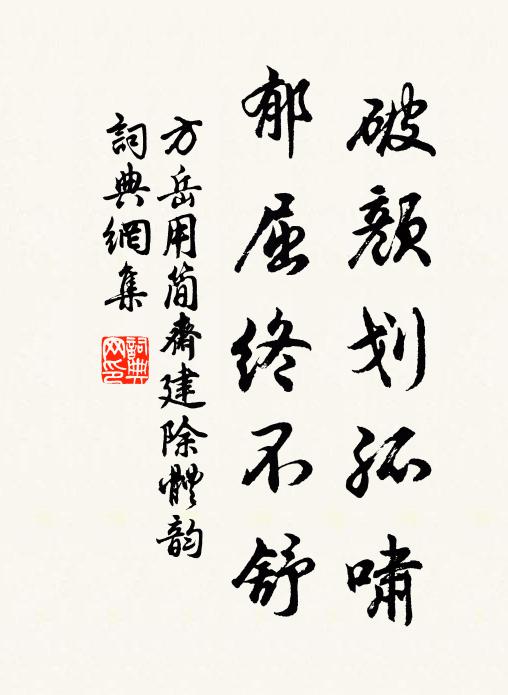 破颜划孤啸
郁屈终不舒
方岳用简斋建除體韵
詞典網集
詞典网印